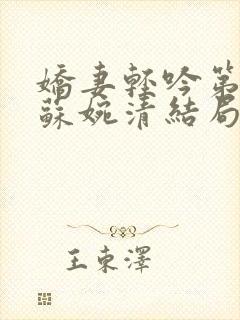 嬌妻輕吟第
蘇婉清結局
王東澤